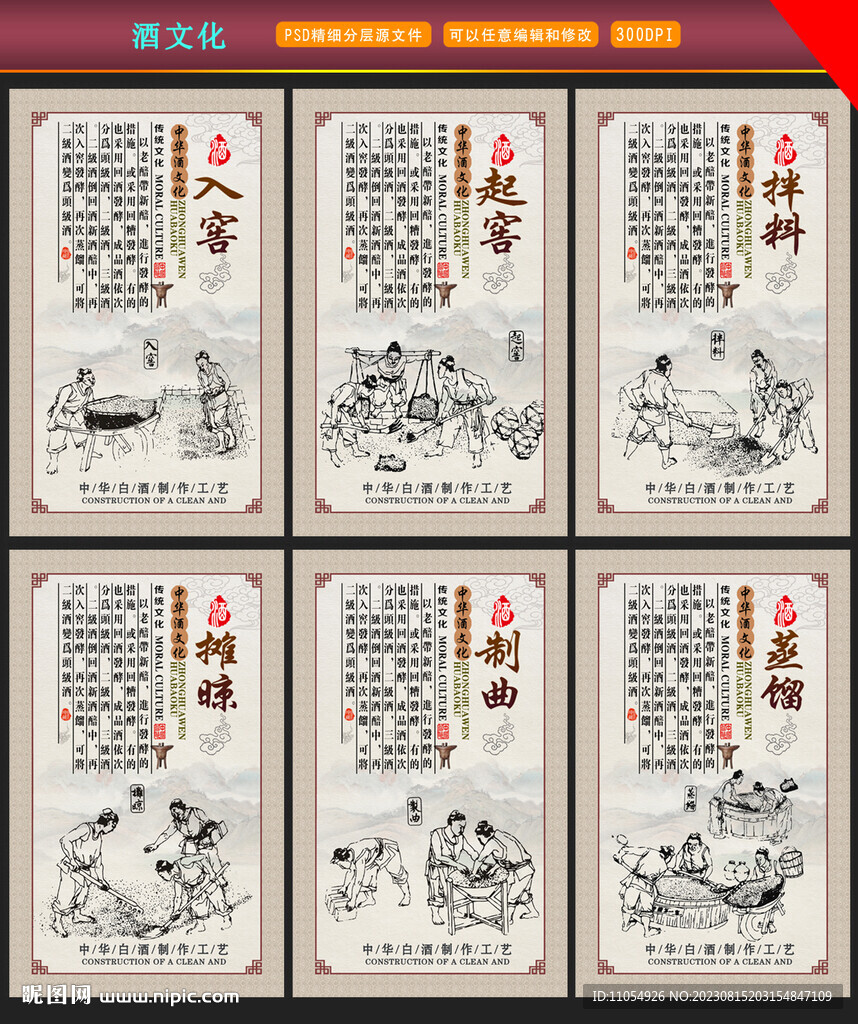 酒文化
PSD精细分层源文件
可以任意编辑和修改
300DPI
酒
入窖
中华酒文化
ZHONGHUAWEN
HUABAOKU
传统文化 MORAL CULTURE
以老醅帶新醅,進行發酵的
措施。或采用回糟發酵。有的
也采用回酒發酵,成品酒依次
分爲頭級酒,二級酒,三級酒
。二級酒倒回酒新酒醅中,再
次入窖發酵,再次蒸餾,可將
二級酒變爲頭級酒。
入窖
中/华/白/酒/制/作/工/艺
CONSTRUCTION OF A CLEAN AND
酒
起窖
中华酒文化
ZHONGHUAWEN
HUABAOKU
传统文化 MORAL CULTURE
以老醅帶新醅,進行發酵的
措施。或采用回糟發酵。有的
也采用回酒發酵,成品酒依次
分爲頭級酒,二級酒,三級酒
。二級酒倒回酒新酒醅中,再
次入窖發酵,再次蒸餾,可將
二級酒變爲頭級酒。
起窖
中/华/白/酒/制/作/工/艺
CONSTRUCTION OF A CLEAN AND
酒
拌料
中华酒文化
ZHONGHUAWEN
HUABAOKU
传统文化 MORAL CULTURE
以老醅帶新醅,進行發酵的
措施。或采用回糟發酵。有的
也采用回酒發酵,成品酒依次
分爲頭級酒,二級酒,三級酒
。二級酒倒回酒新酒醅中,再
次入窖發酵,再次蒸餾,可將
二級酒變爲頭級酒。
拌料
中/华/白/酒/制/作/工/艺
CONSTRUCTION OF A CLEAN AND
酒
摊晾
中华酒文化
ZHONGHUAWEN
HUABAOKU
传统文化 MORAL CULTURE
以老醅帶新醅,進行發酵的
措施。或采用回糟發酵。有的
也采用回酒發酵,成品酒依次
分爲頭級酒,二級酒,三級酒
。二級酒倒回酒新酒醅中,再
次入窖發酵,再次蒸餾,可將
二級酒變爲頭級酒。
攤晾
中/华/白/酒/制/作/工/艺
CONSTRUCTION OF A CLEAN AND
酒
制曲
中华酒文化
ZHONGHUAWEN
HUABAOKU
传统文化 MORAL CULTURE
以老醅帶新醅,進行發酵的
措施。或采用回糟發酵。有的
也采用回酒發酵,成品酒依次
分爲頭級酒,二級酒,三級酒
。二級酒倒回酒新酒醅中,再
次入窖發酵,再次蒸餾,可將
二級酒變爲頭級酒。
製曲
中/华/白/酒/制/作/工/艺
CONSTRUCTION OF A CLEAN AND
酒
蒸馏
中华酒文化
ZHONGHUAWEN
HUABAOKU
传统文化 MORAL CULTURE
以老醅帶新醅,進行發酵的
措施。或采用回糟發酵。有的
也采用回酒發酵,成品酒依次
分爲頭級酒,二級酒,三級酒
。二級酒倒回酒新酒醅中,再
次入窖發酵,再次蒸餾,可將
二級酒變爲頭級酒。
蒸餾
中/华/白/酒/制/作/工/艺
CONSTRUCTION OF A CLEAN AND
昵图网 www.nipic.com
ID:11054926 NO:20230815203154847109